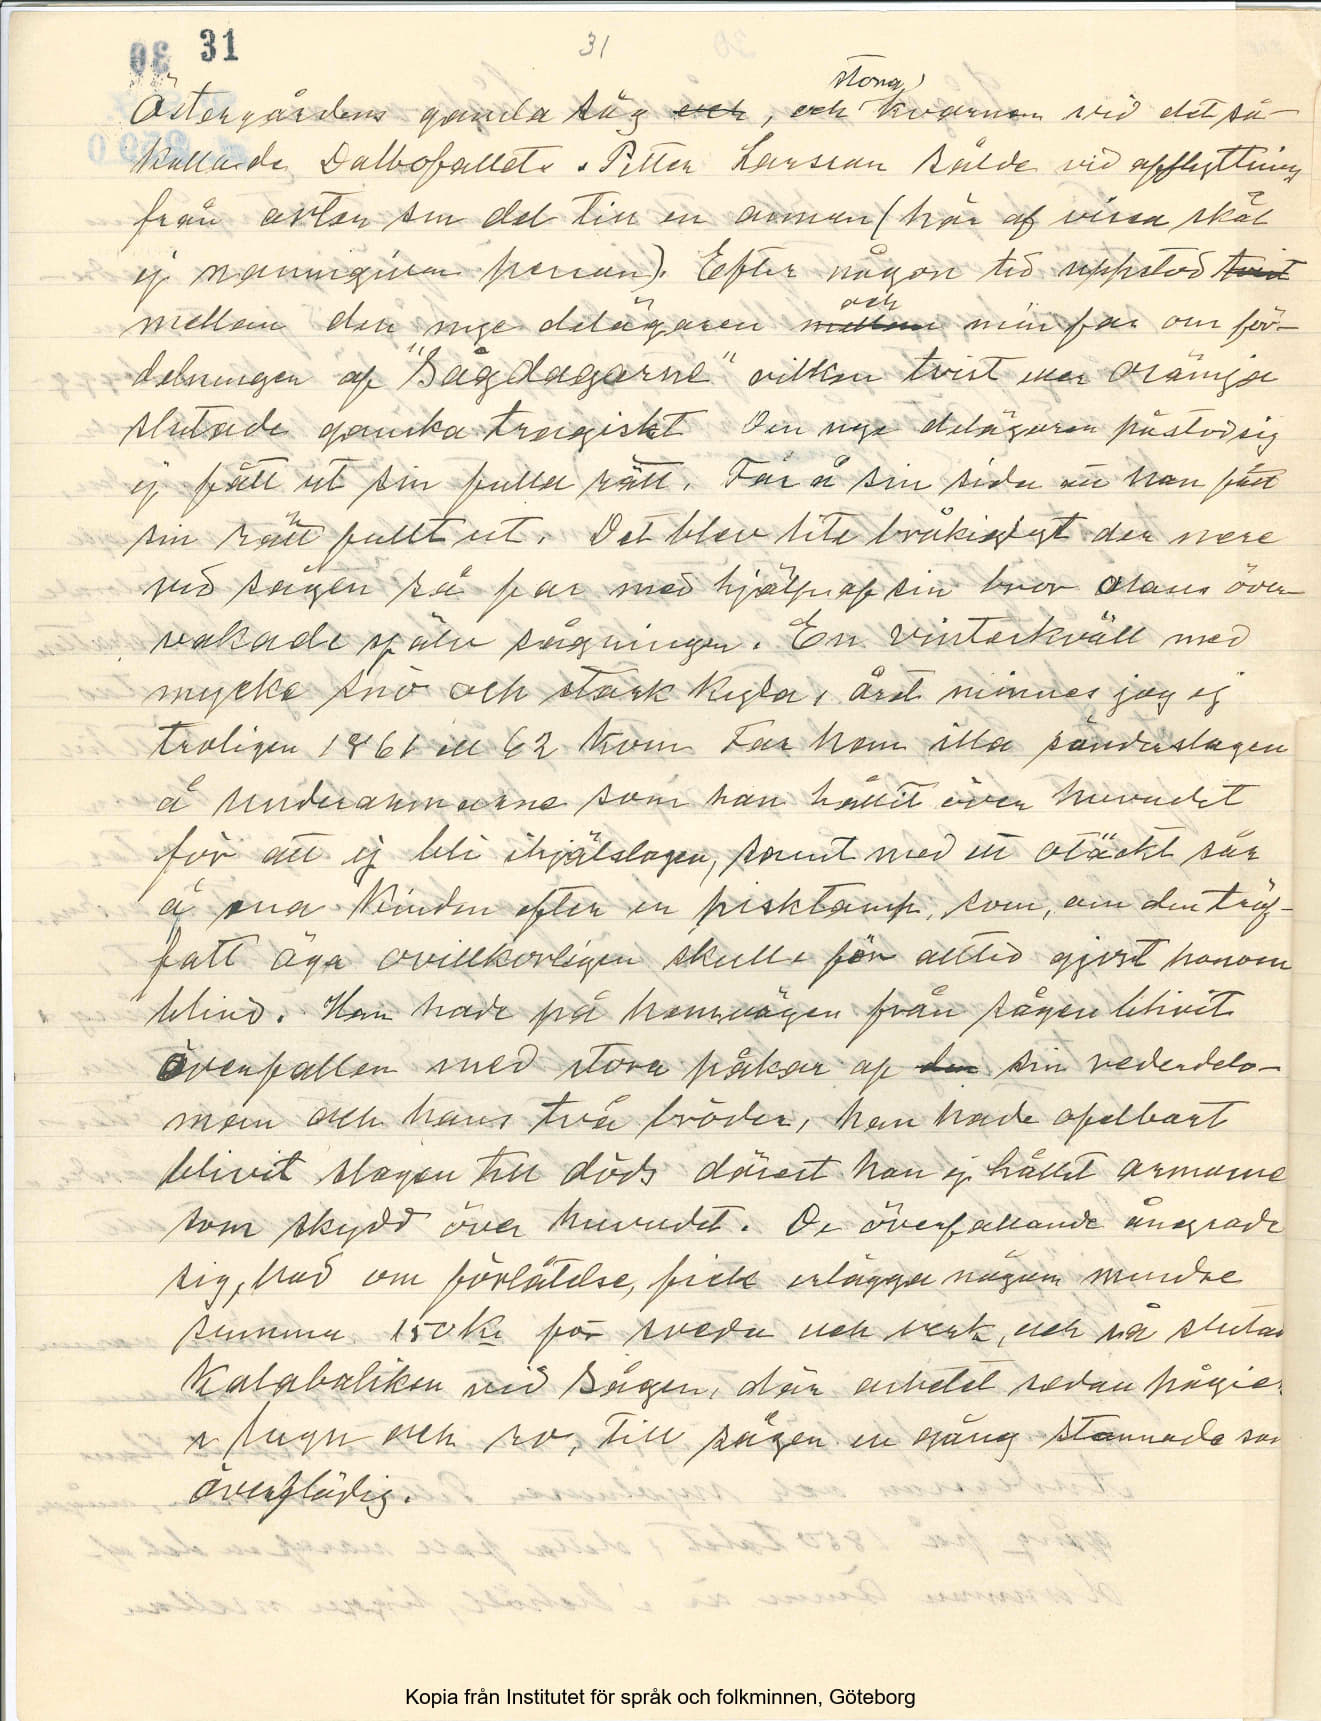 31
31
Östergårdens gamla såg och, och stora kvarnen vid det så-
kallade Dalbofallet. Petter Larsson sålde vid afflyttning
från orten sin del till en annan (här af vissa skäl
ej namngiven person). Efter någon tid uppstod tvist
mellan den nye delägaren mellan och min far om för-
delningen af "Sågdagarne" vilken tvist eller oränja
slutade ganska tragiskt Den nye delägaren påstod sig
ej fått ut sin fulla rätt. Far å sin sida att han fått
sin rätt fullt ut. Det blev lite bråkigt der nere
vid sågen så far med hjälp af sin bror Claus över-
vakade själv sågningen. En vinterkväll med
mycke snö och stark kyla, året minnes jag ej
troligen 1861 ell 62 kom Far hem illa sönderslagen
å underarmarne som han hållit över huvudet
för att ej bli ihjälslagen, samt med ett otäckt sår
å ena kinden efter en pisktamp, som, om den träf-
fatt öga ovillkorligen skulle för alltid gjort honom
blind. Han hade på hemvägen från sågen blivit
överfallen med stora påkar af den sin vederdelo-
man och hans två bröder, han hade ofelbart
blivit slagen till döds därest han ej hållit armarne
som skydd över huvudet. De överfallande ångrade
sig, bad om förlåtelse, fick erlägga någon mindre
summa 150 kr för sveda och verk, och så slutad
Kalabaliken vid Sågen, där arbetet sedan pågic
i lugn och ro, till sågen en gång stannade som
överflödig.
Kopia från Institutet för språk och folkminnen, Göteborg